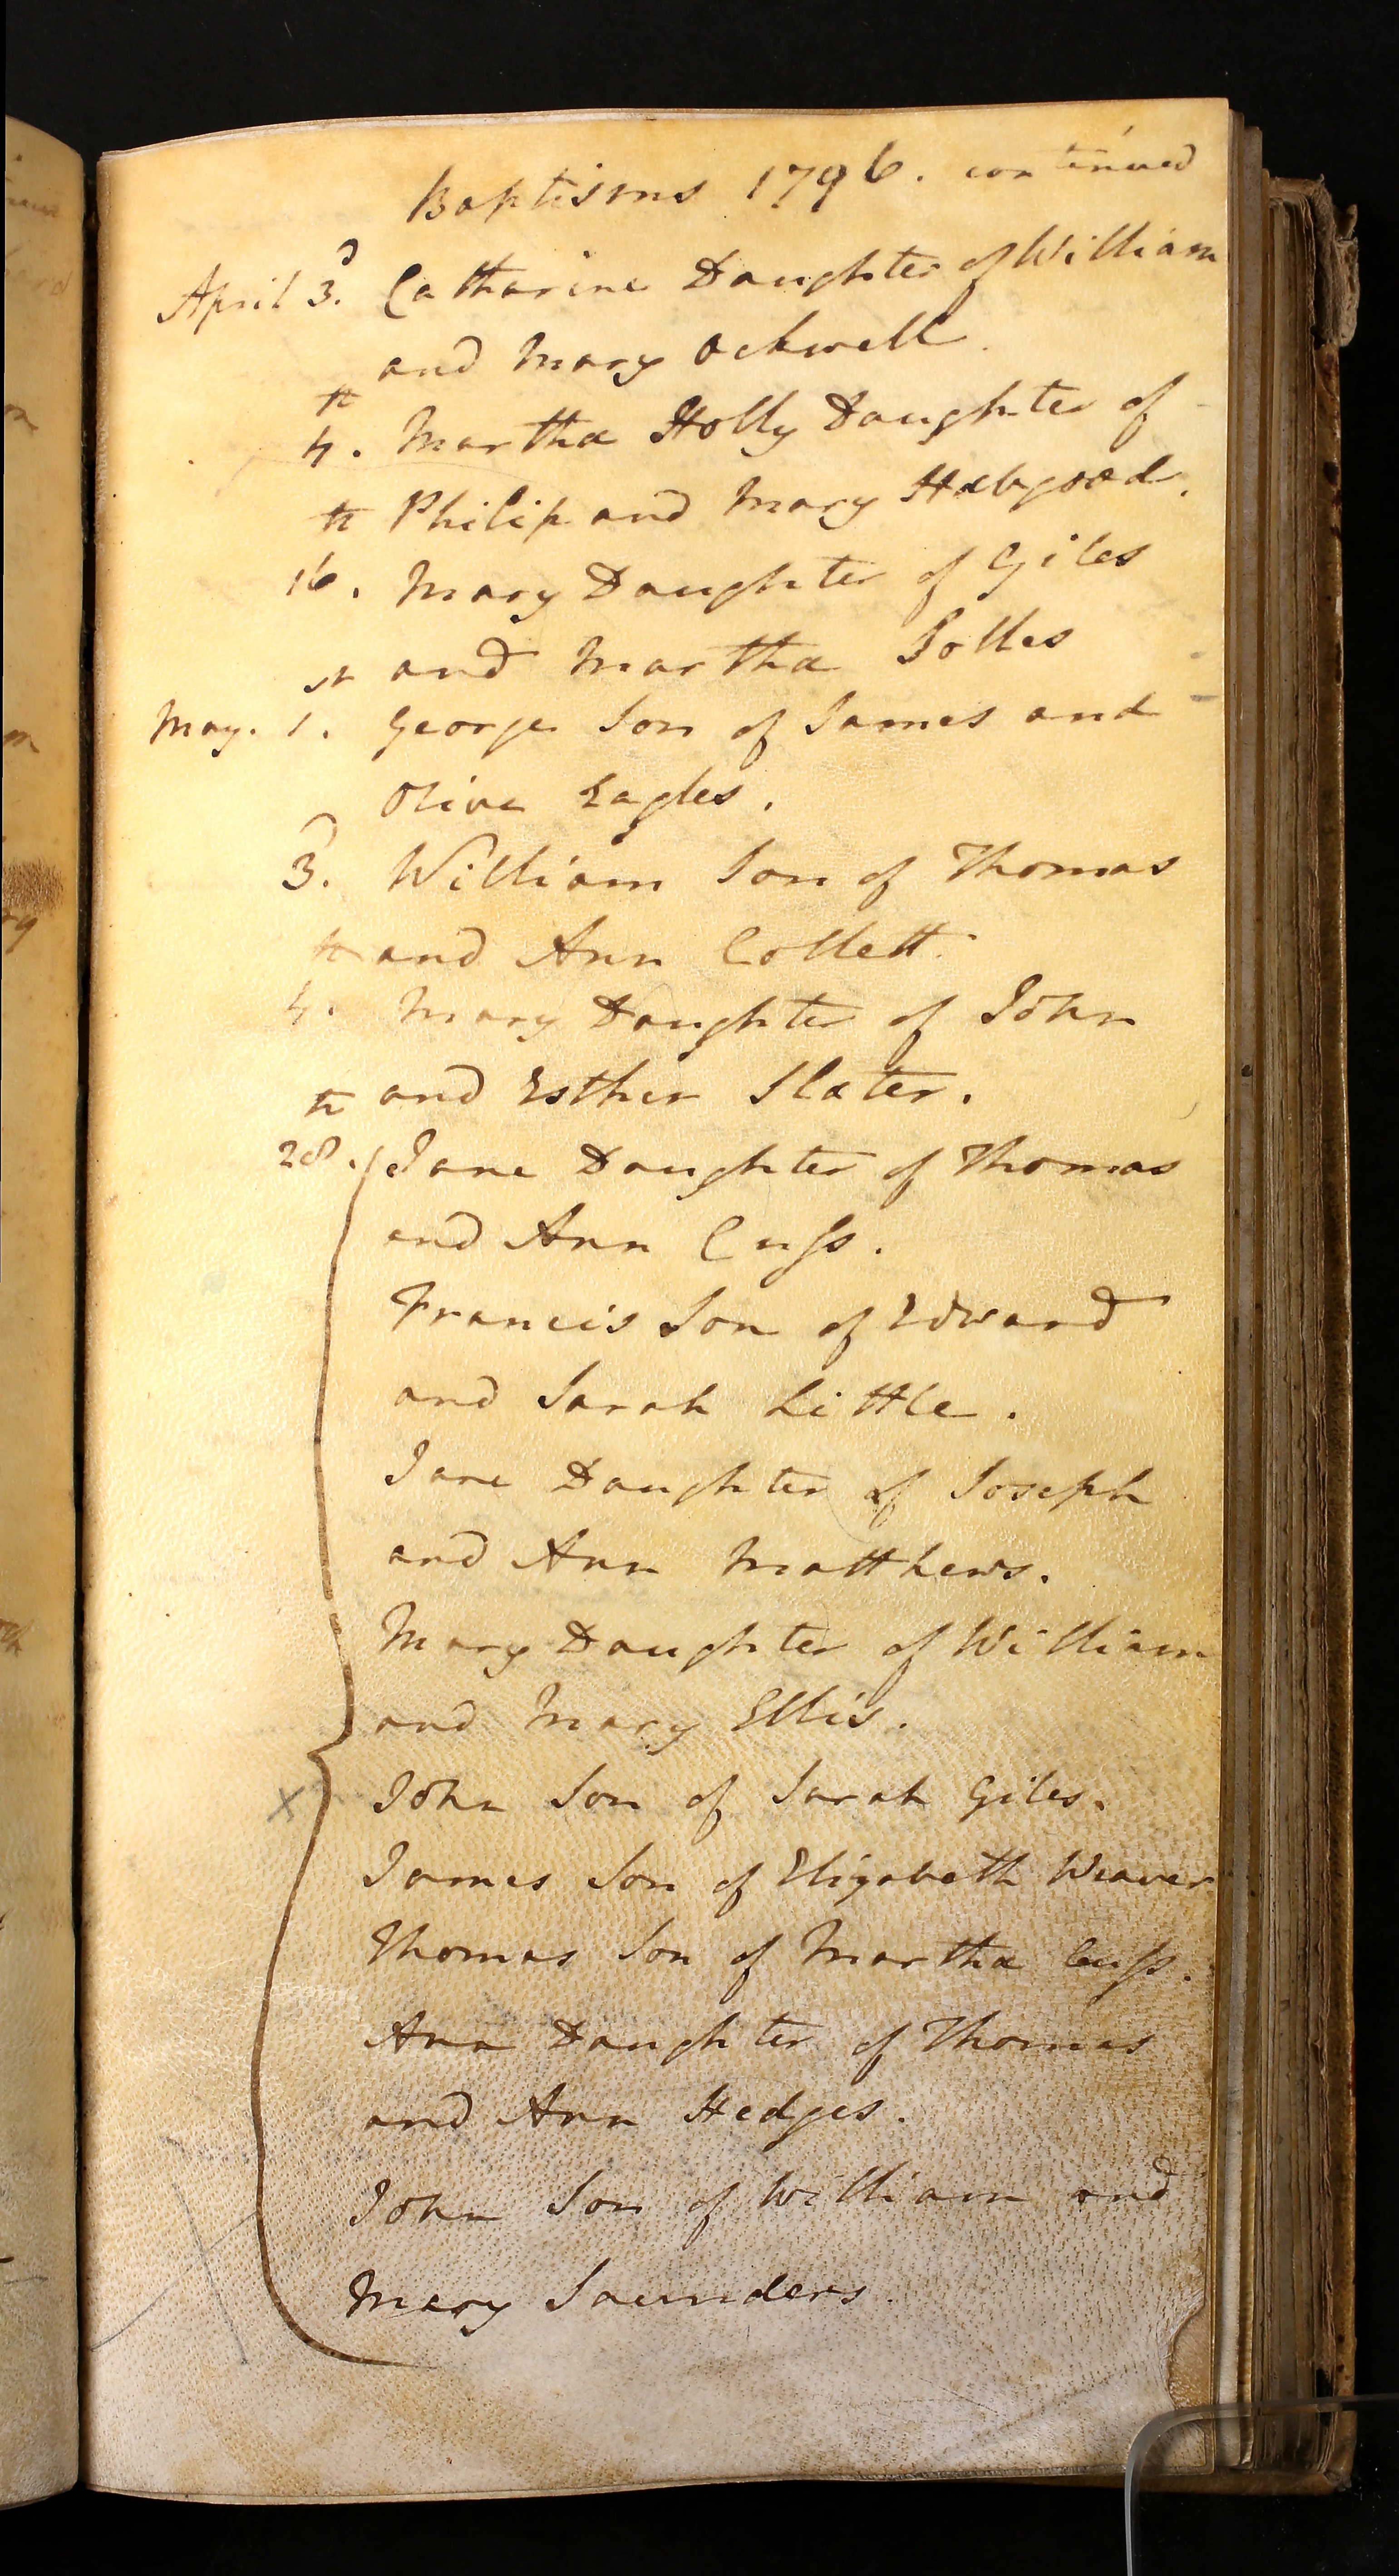 Baptisms 1796. continued
April 3.d Catharine Daughter of William
and Mary Ockwell.
4.th Martha Holly Daughter of
Philip and Mary Habgood.
16.th Mary Daughter of Giles
and Martha
May. 1.st George Son of James and
Olive Eagles.
3.d William Son of Thomas
and Ann Collett.
4.th Mary Daughter of John
and Esther Slater.
28.th Jane Daughter of Thomas
and Ann Cuss.
Francis Son of Edward
and Sarah Little.
Jane Daughter of Joseph
and Ann Matthews.
Mary Daughter of William
and Mary Ellis.
X John Son of Sarah Giles.
James Son of Elizabeth Weaver
Thomas Son of Martha Cuss.
Ann Daughter of Thomas
and Ann Hedges.
John Son of William and
Mary Saunders.